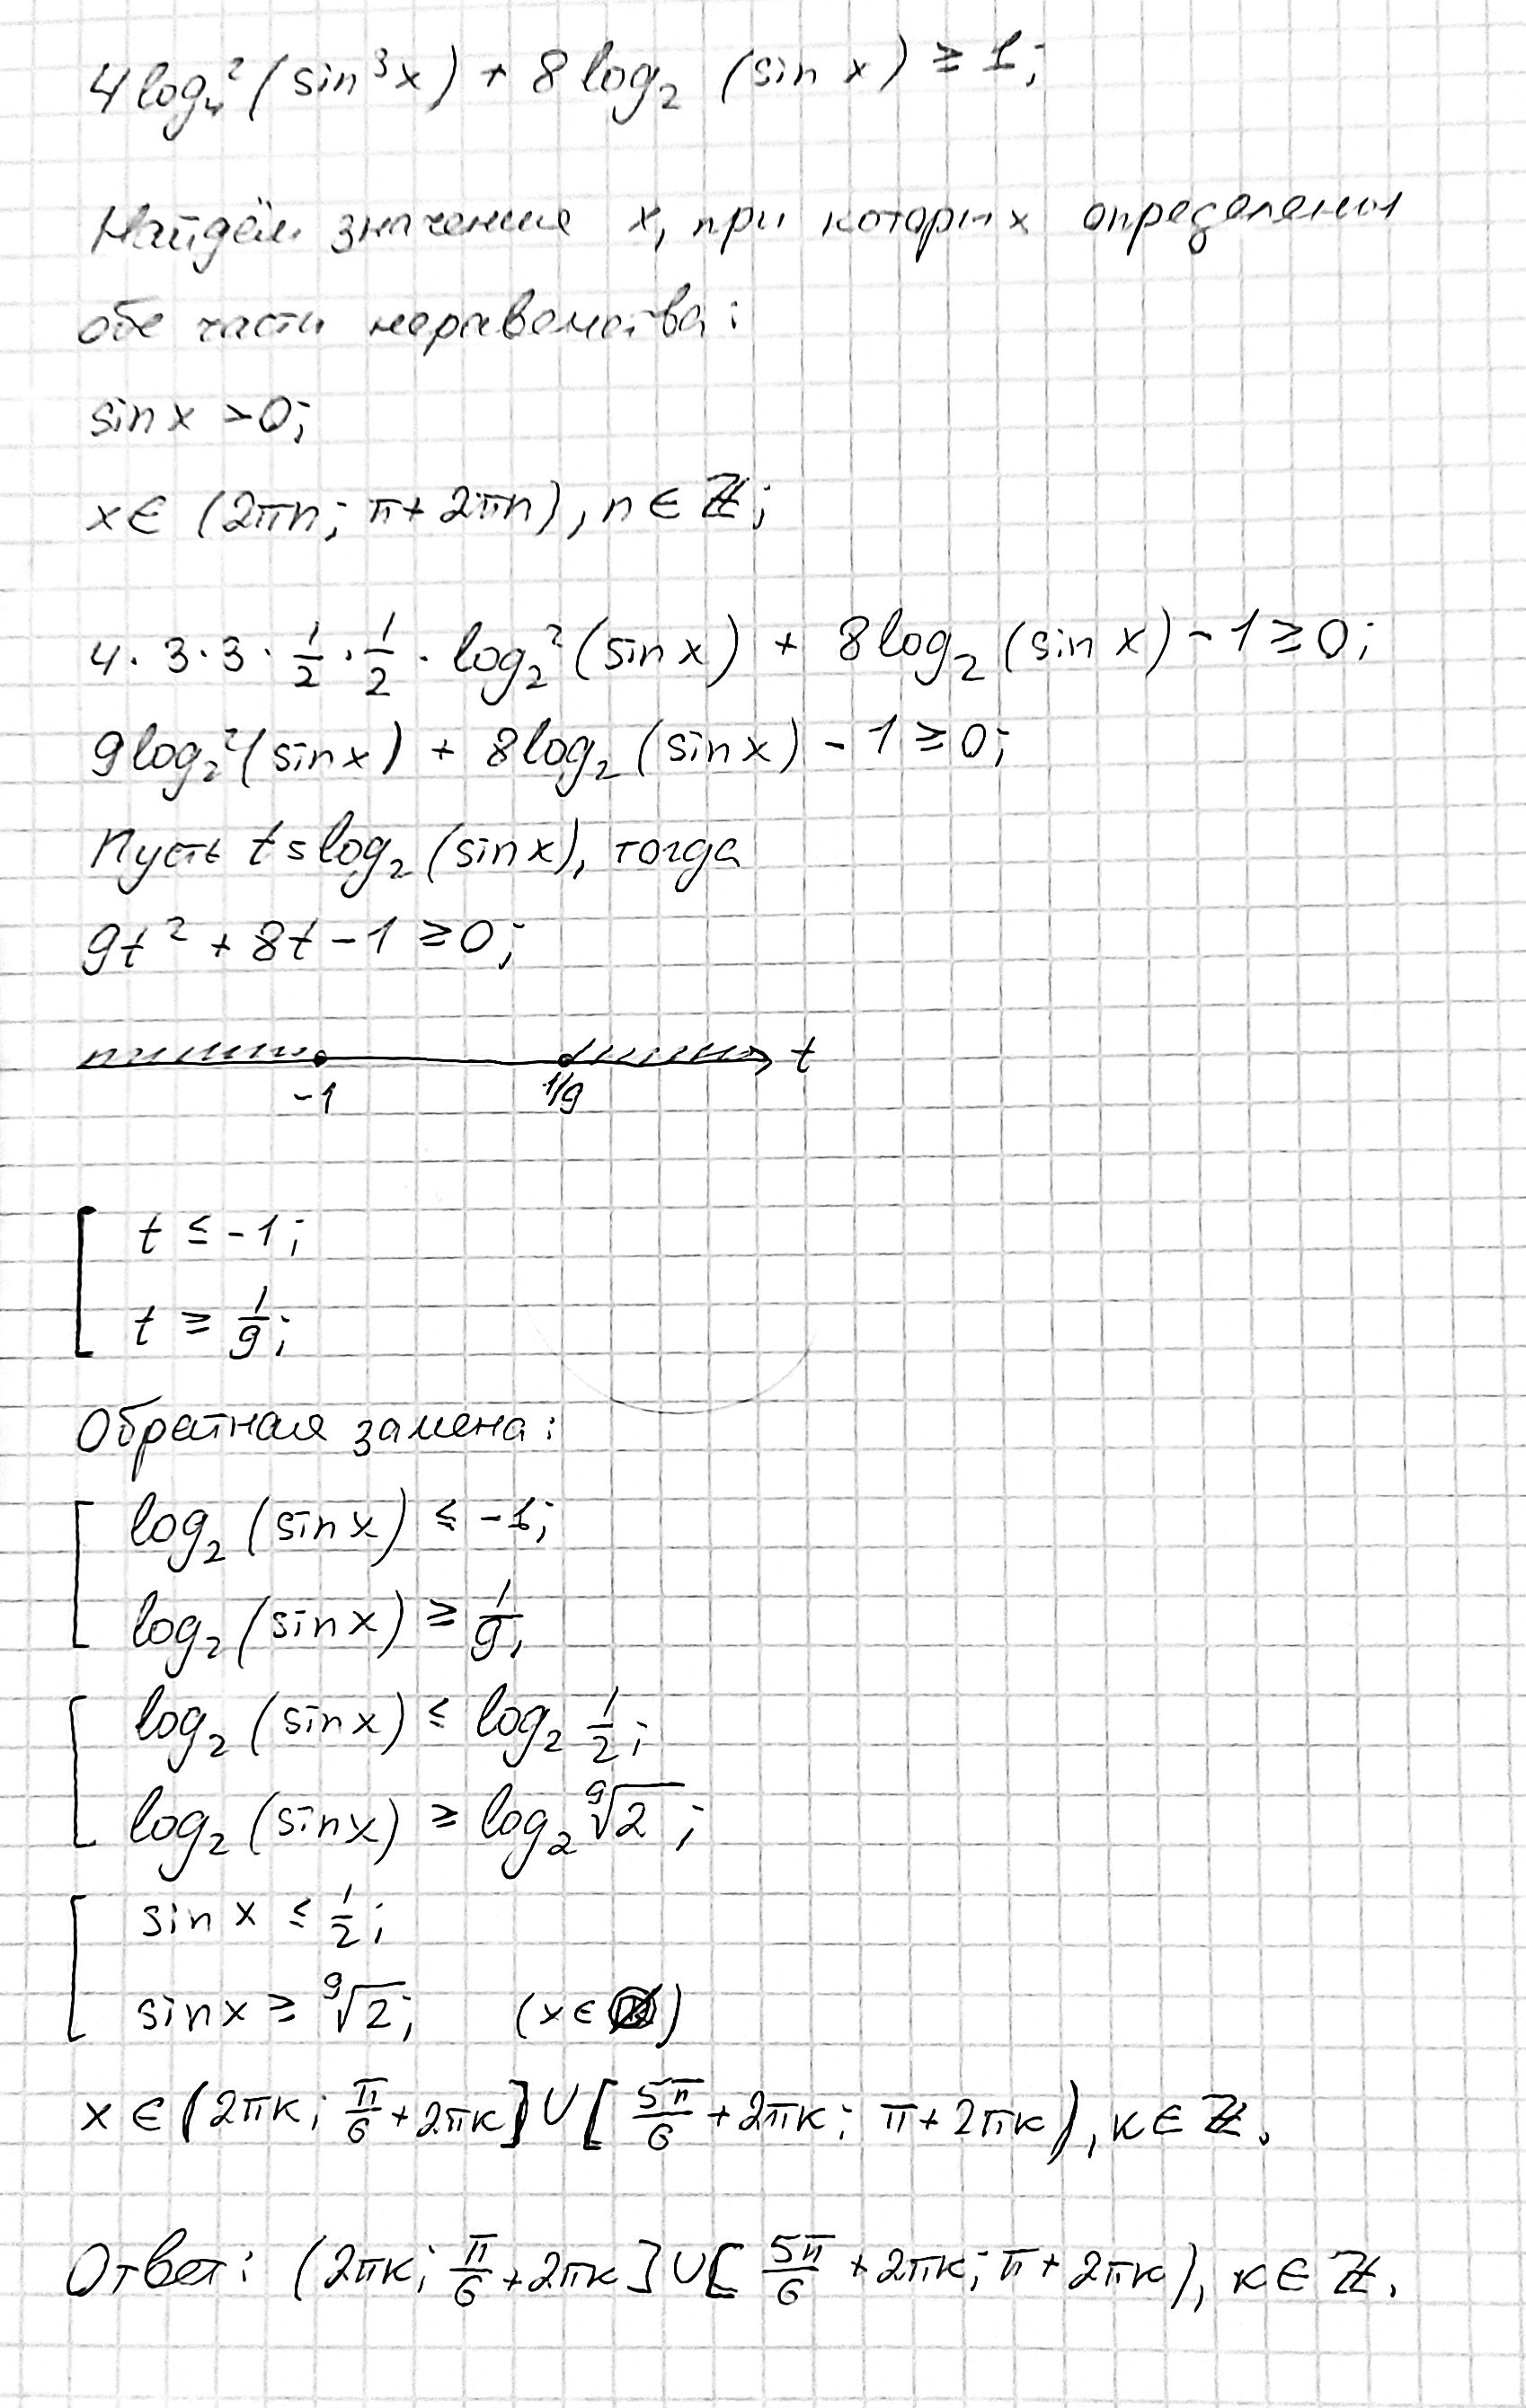 4log₄²(sin³x) + 8log₂(sin x) ≥ 1;
Найдём значения x, при которых определены
обе части неравенства:
sin x > 0;
x ∈ (2πn; π + 2πn), n ∈ ℤ;
4 · 3 · 3 · 1/2 · 1/2 · log₂²(sin x) + 8log₂(sin x) - 1 ≥ 0;
9log₂²(sin x) + 8log₂(sin x) - 1 ≥ 0;
Пусть t = log₂(sin x), тогда
9t² + 8t - 1 ≥ 0;
t
-1 1/9
t ≤ -1;
t ≥ 1/9;
Обратная замена:
log₂(sin x) ≤ -1;
log₂(sin x) ≥ 1/9;
log₂(sin x) ≤ log₂ 1/2;
log₂(sin x) ≥ log₂ ⁹√2;
sin x ≤ 1/2;
sin x ≥ ⁹√2; (x ∈ ∅)
x ∈ (2πk; π/6 + 2πk] ∪ [5π/6 + 2πk; π + 2πk), k ∈ ℤ.
Ответ: (2πk; π/6 + 2πk] ∪ [5π/6 + 2πk; π + 2πk), k ∈ ℤ.